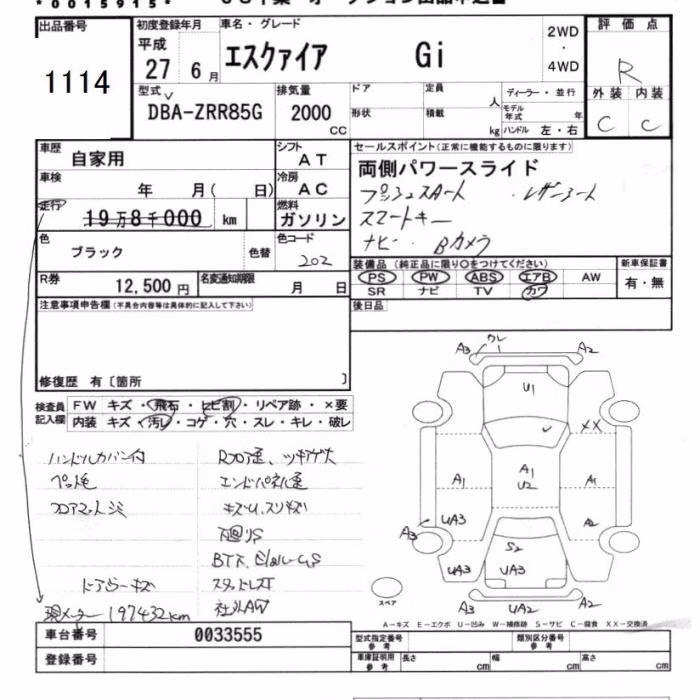 *0015915*
出品番号 初度登録年月 車名・グレード 2WD ・ 4WD 評価点
1114 平成 27 6月 エスクァイア Gi R
型式 排気量 ドア 定員 人 ディーラー・並行 外装 内装
DBA-ZRR85G 2000 CC 形状 積載 kg モデル年式 年 ハンドル 左・右 C C
車歴 自家用 シフト AT セールスポイント(正常に機能するものに限ります)
車検 年 月( 日) 冷房 AC 両側パワースライド
走行 19万8千000 km 燃料 ガソリン プッシュスタート ・レザーシート
スマートキー
色 ブラック 色替 色コード 202 ナビ・Bカメラ
装備品(純正品に限り○をつけてください) 新車保証書
R券 12,500円 名変通知期限 月 日 PS PW ABS エアB AW 有・無
SR ナビ TV カワ
注意事項申告欄(不具合内容等は具体的に記入して下さい) 後日品
修復歴 有〔箇所 〕
検査員記入欄 FW キズ・飛石・ヒビ割・リペア跡・×要
内装 キズ・汚レ・コゲ・穴・スレ・キレ・破レ
ハンドルカバー付 Rフロア歪、ツキアゲ大
ペット毛 エンドパネル歪
フロアマットシミ キズU、スリキズ
下廻りS
ドアミラーキズ
現メーター 197432km 社外AW
A3 ワレ A2
U1
XX
A1 A1 U2 A1
A3 UA3 A2
S2
UA3 UA3
A3 UA2 A2
スペア
A-キズ E-エクボ U-凹み W-補修跡 S-サビ C-腐食 XX-交換済
車台番号 0033555 型式指定番号 参考 類別区分番号 参考
登録番号 車庫証明用 参考 長さ cm 幅 cm 高さ cm